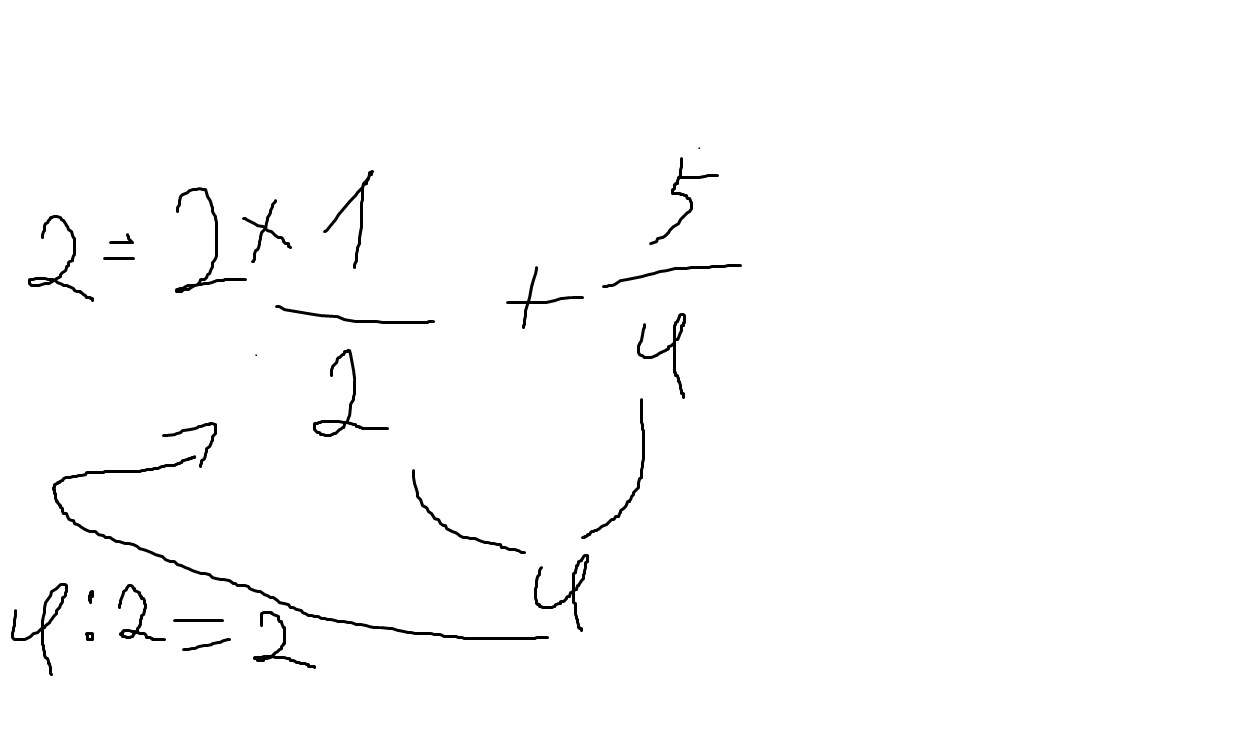 2 = 2 × 1 5
+
2 4
4
4 : 2 = 2